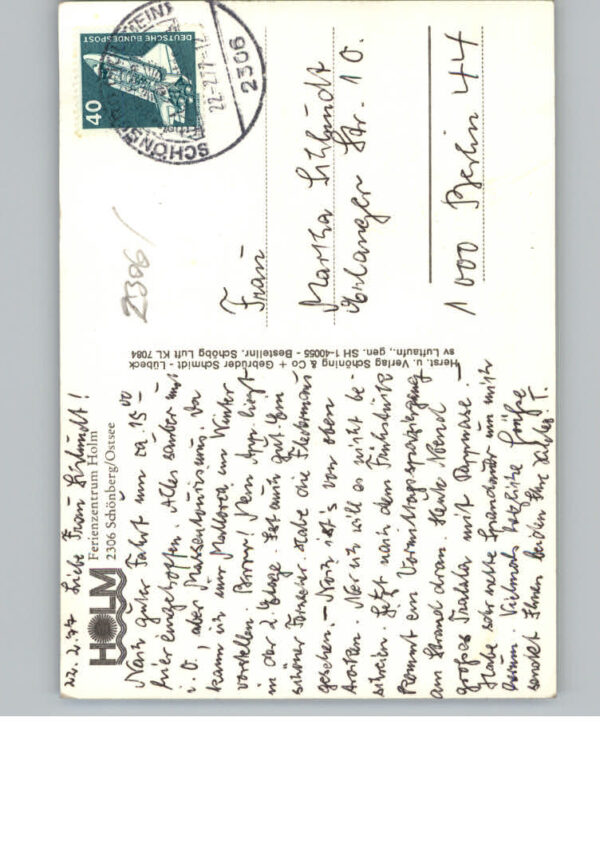 HOLM
Ferienzentrum Holm
2306 Schönberg/Ostsee
22.2.77 Liebe Frau
Nach guter Fahrt um ca. 15⁰⁰
hier eingetroffen. Alles sauber und
i. O., aber Massentourismus. Da
kann ich um Mallorca im Winter
vorstellen. Brrrr! Mein App. liegt
in der 2. Etage. Ist auch gut. Ein
schöner Habe die Fledermaus
gesehen. – Noch ist's von oben
trocken. Nur ich will es nicht be-
schreien. Jetzt nach dem Frühstück
kommt ein Vormittagsspaziergang
am Strand dran. Heute Abend
großes mit
Habe sehr nette um mich
herum. Vielmals herzliche Grüße
sendet Ihnen beiden Ihre T.
Herst. u. Verlag Schöning & Co + Gebrüder Schmidt - Lübeck
sv Luftaufn., gen. SH 1-40055 - Bestellnr. Schöbg Luft KL 7084
2306/
DEUTSCHE BUNDESPOST
40
SCHÖNB
22-2.77-12
2306
Frau
Martha
Erlanger Str. 10.
1000 Berlin 44